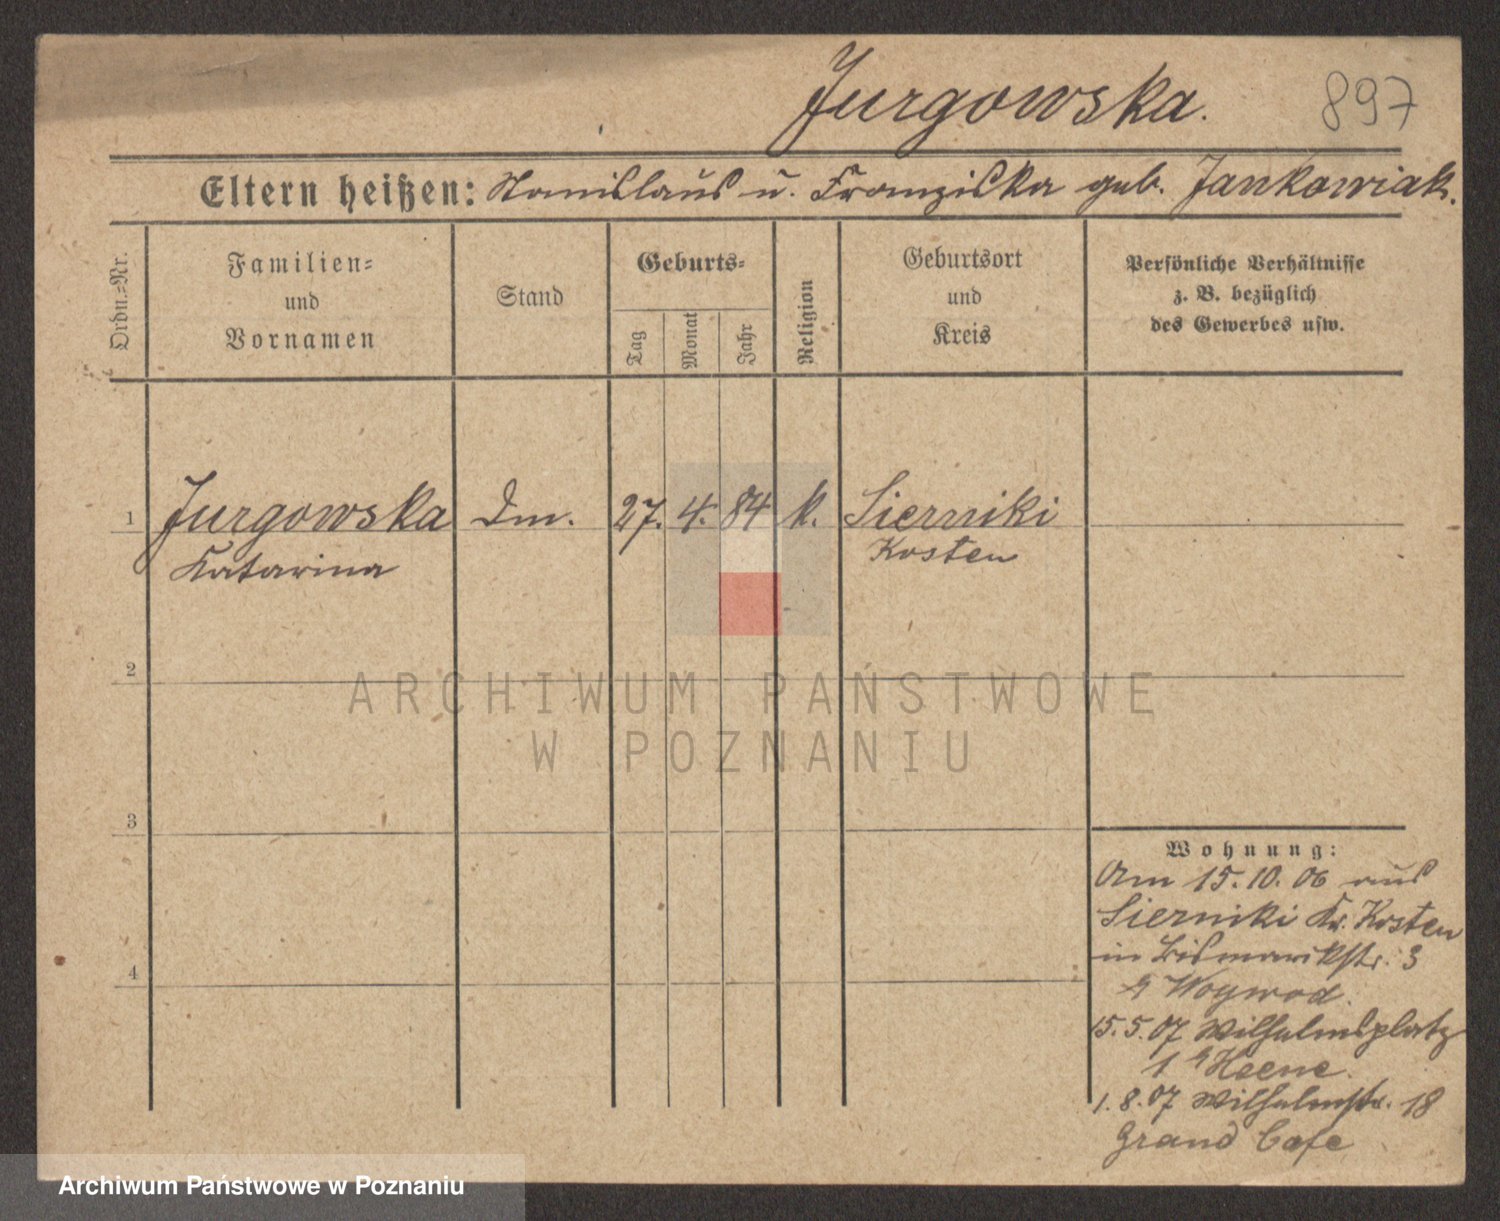 Jurgowska.
897
Eltern heißen: Stanislaus u. Franziska geb. Jankowiak.
Ordn.=Nr.
Familien=
und
Vornamen
Stand
Geburts=
Tag
Monat
Jahr
Religion
Geburtsort
und
Kreis
Persönliche Verhältnisse
z. B. bezüglich
des Gewerbes usw.
1 Jurgowska Dm. 27. 4. 84 k. Sierniki
Katarina Kosten
2
ARCHIWUM PAŃSTWOWE
W POZNANIU
3
Wohnung:
Am 15.10.06 aus
Sierniki Kr. Kosten
in Bismarckstr. 3
Woywod.
15.5.07 Wilhelmsplatz
1 Heene.
1.8.07 Wilhelmstr. 18
Grand Cafe
4
Archiwum Państwowe w Poznaniu